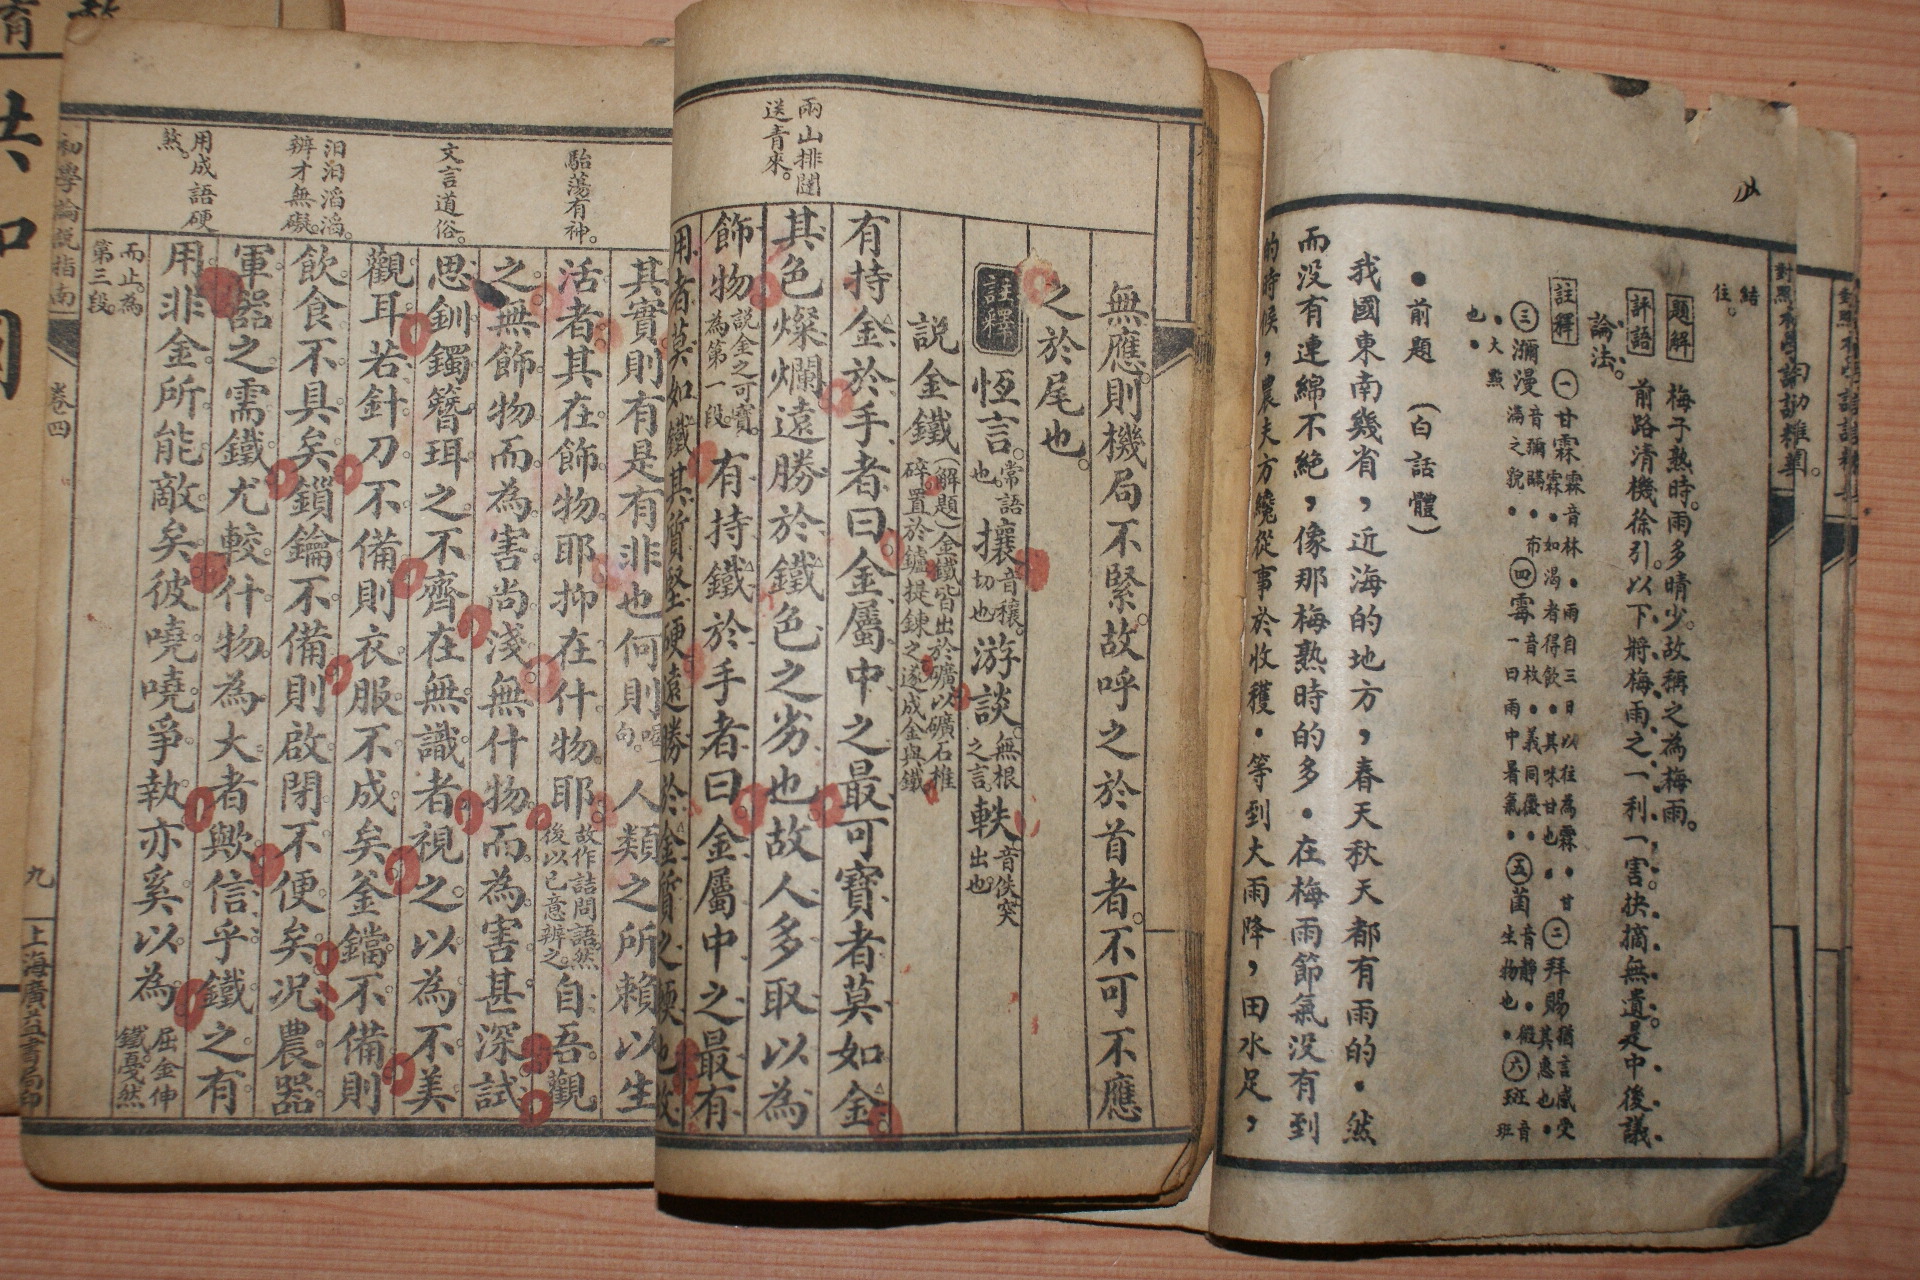 結
住。
題解 梅子熟時。雨多晴少。故稱之為梅雨。
評語 前路清機徐引。以下將梅雨之一利一害。抉摘無遺。是中後議
論法。
註釋 ㊀甘霖 霖音林。雨自三日以往為霖。甘霖。如渴者得飲。其味甘也。㊁拜賜 猶言感受其惠也。
㊂瀰漫 音彌瞞。布滿之貌。㊃霉 音枚。義同黴。一曰雨中暑氣。㊄菌
也。
●前題 (白話體)
我國東南幾省,近海的地方,春天秋天都有雨的。然
而沒有連綿不絕,像那梅熟時的多。在梅雨節氣沒有到
的時候,農夫方纔從事於收獲。等到大雨降,田水足,
兩山排闥
送青來。
無應。則機局不緊。故呼之於首者。不可不應
之於尾也。
註釋 恆言。常語也。攘音穰。切也。游談。無根之言。軼音佚突出也。
說金鐵(解題)金鐵皆出於礦以礦石椎碎。置於鑪。提鍊之遂成金與鐵
有持金於手者曰。金屬中之最可寶者。莫如金。
其色燦爛。遠勝於鐵色之劣也。故人多取以為
飾物。說金之可寶。為第一段。有持鐵於手者曰。金屬中之最有
用者。莫如鐵。其質堅硬。遠勝於金質之輭也。故
駘蕩有神。
文言道俗。
汩汩滔滔。
辨才無礙。
用成語硬
煞。
其實則有是有非也。何則句。人類之所賴以生
活者。其在飾物耶。抑在什物耶。故作詰問語。然後以己意辨之。自吾觀
之。無飾物而為害尚淺。無什物而為害甚深。試
思釧鐲簪珥之不齊。在無識者視之。以為不美
觀耳。若針刀不備。則衣服不成矣。釜鐺不備。則
飲食不具矣。鎖鑰不備。則啟閉不便矣。況農器
軍器之需鐵。尤較什物為大者歟。信乎鐵之有
用。非金所能敵矣。彼嘵嘵爭執。亦奚以為。屈金伸鐵。戛然
而止。為
第三段。
初學論說指南
卷四
九
上海廣益書局印